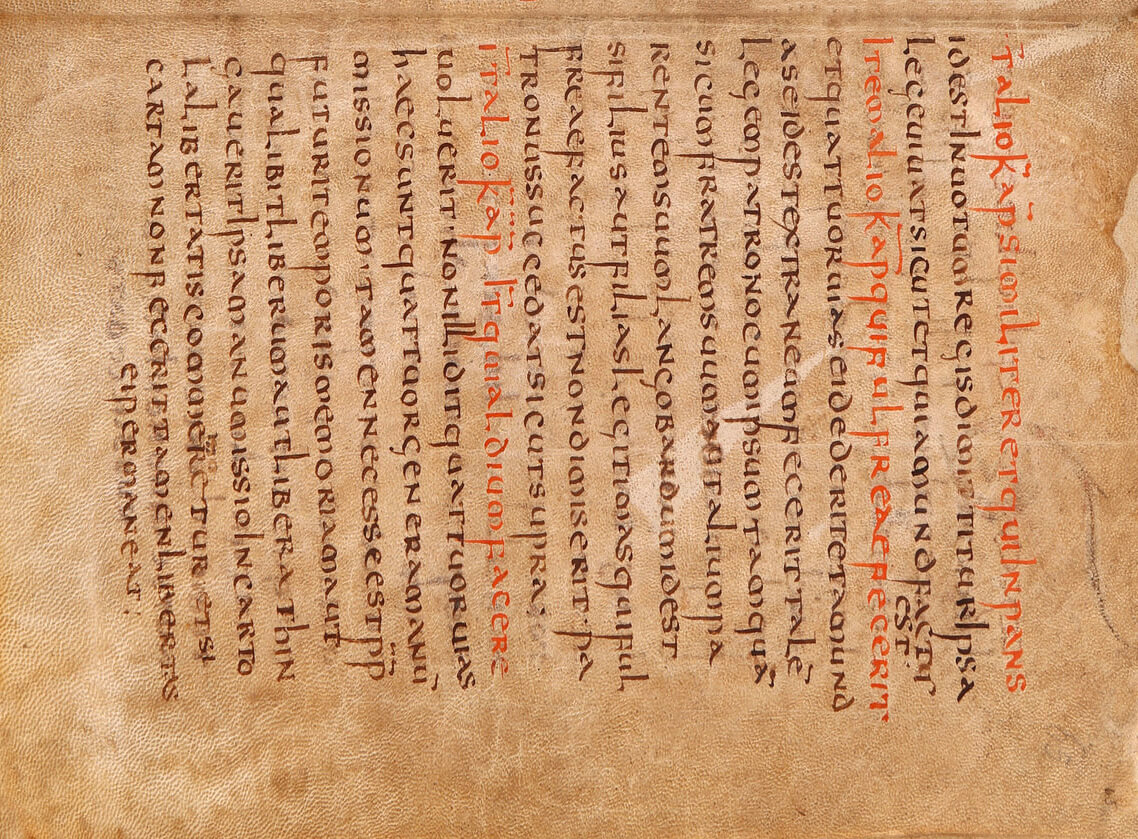 Ī TALIO K̄AP̄ SIMILITER ET QUI IN PANS
IDEST IN UOTUM REGIS DIMITTITUR IPSA
LEGE UIUAT SICUT ET QUI AMUND FACTUS
EST·
ITEM ALIO KAP̄ QUI FULFREAE FECERIT
ET QUATTUOR UIAS EI DEDERIT ET AMUND
A SE IDEST EXTRANEUM FECERIT TALĒ
LEGEM PATRONO CUM IPSUM TAMQUĀ
SI CUM FRATREM SUUM AUT ALIUM PA
RENTEM SUUM LANGOBARDUM IDEST
SI FILIUS AUT FILIAS LEGITIMAS QUI FUL
FREAE FACTUS EST NON DIMISERIT· PA
TRONUS SUCCEDAT SICUT SUPRA;
ĪT ALIO K̄AP̄ ĪT QUI ALDIUM FACERE
UOLUERIT· NON ILLI DIT QUATTUOR UIAS
HAEC SUNT QUATTUOR GENERA MANŪ
MISSIONUM· TAMEN NECESSE EST P̄P̄
FUTURI TEMPORIS MEMORIAM AUT
QUALIBIT LIBERUM AUT LIBERA THIN
GAUERIT IPSA MANUMISSIO IN CARTO
LA LIBERTATIS ETSI
CARTAM NON FECERIT TAMEN LIBERTAS
EI PERMANEAT;